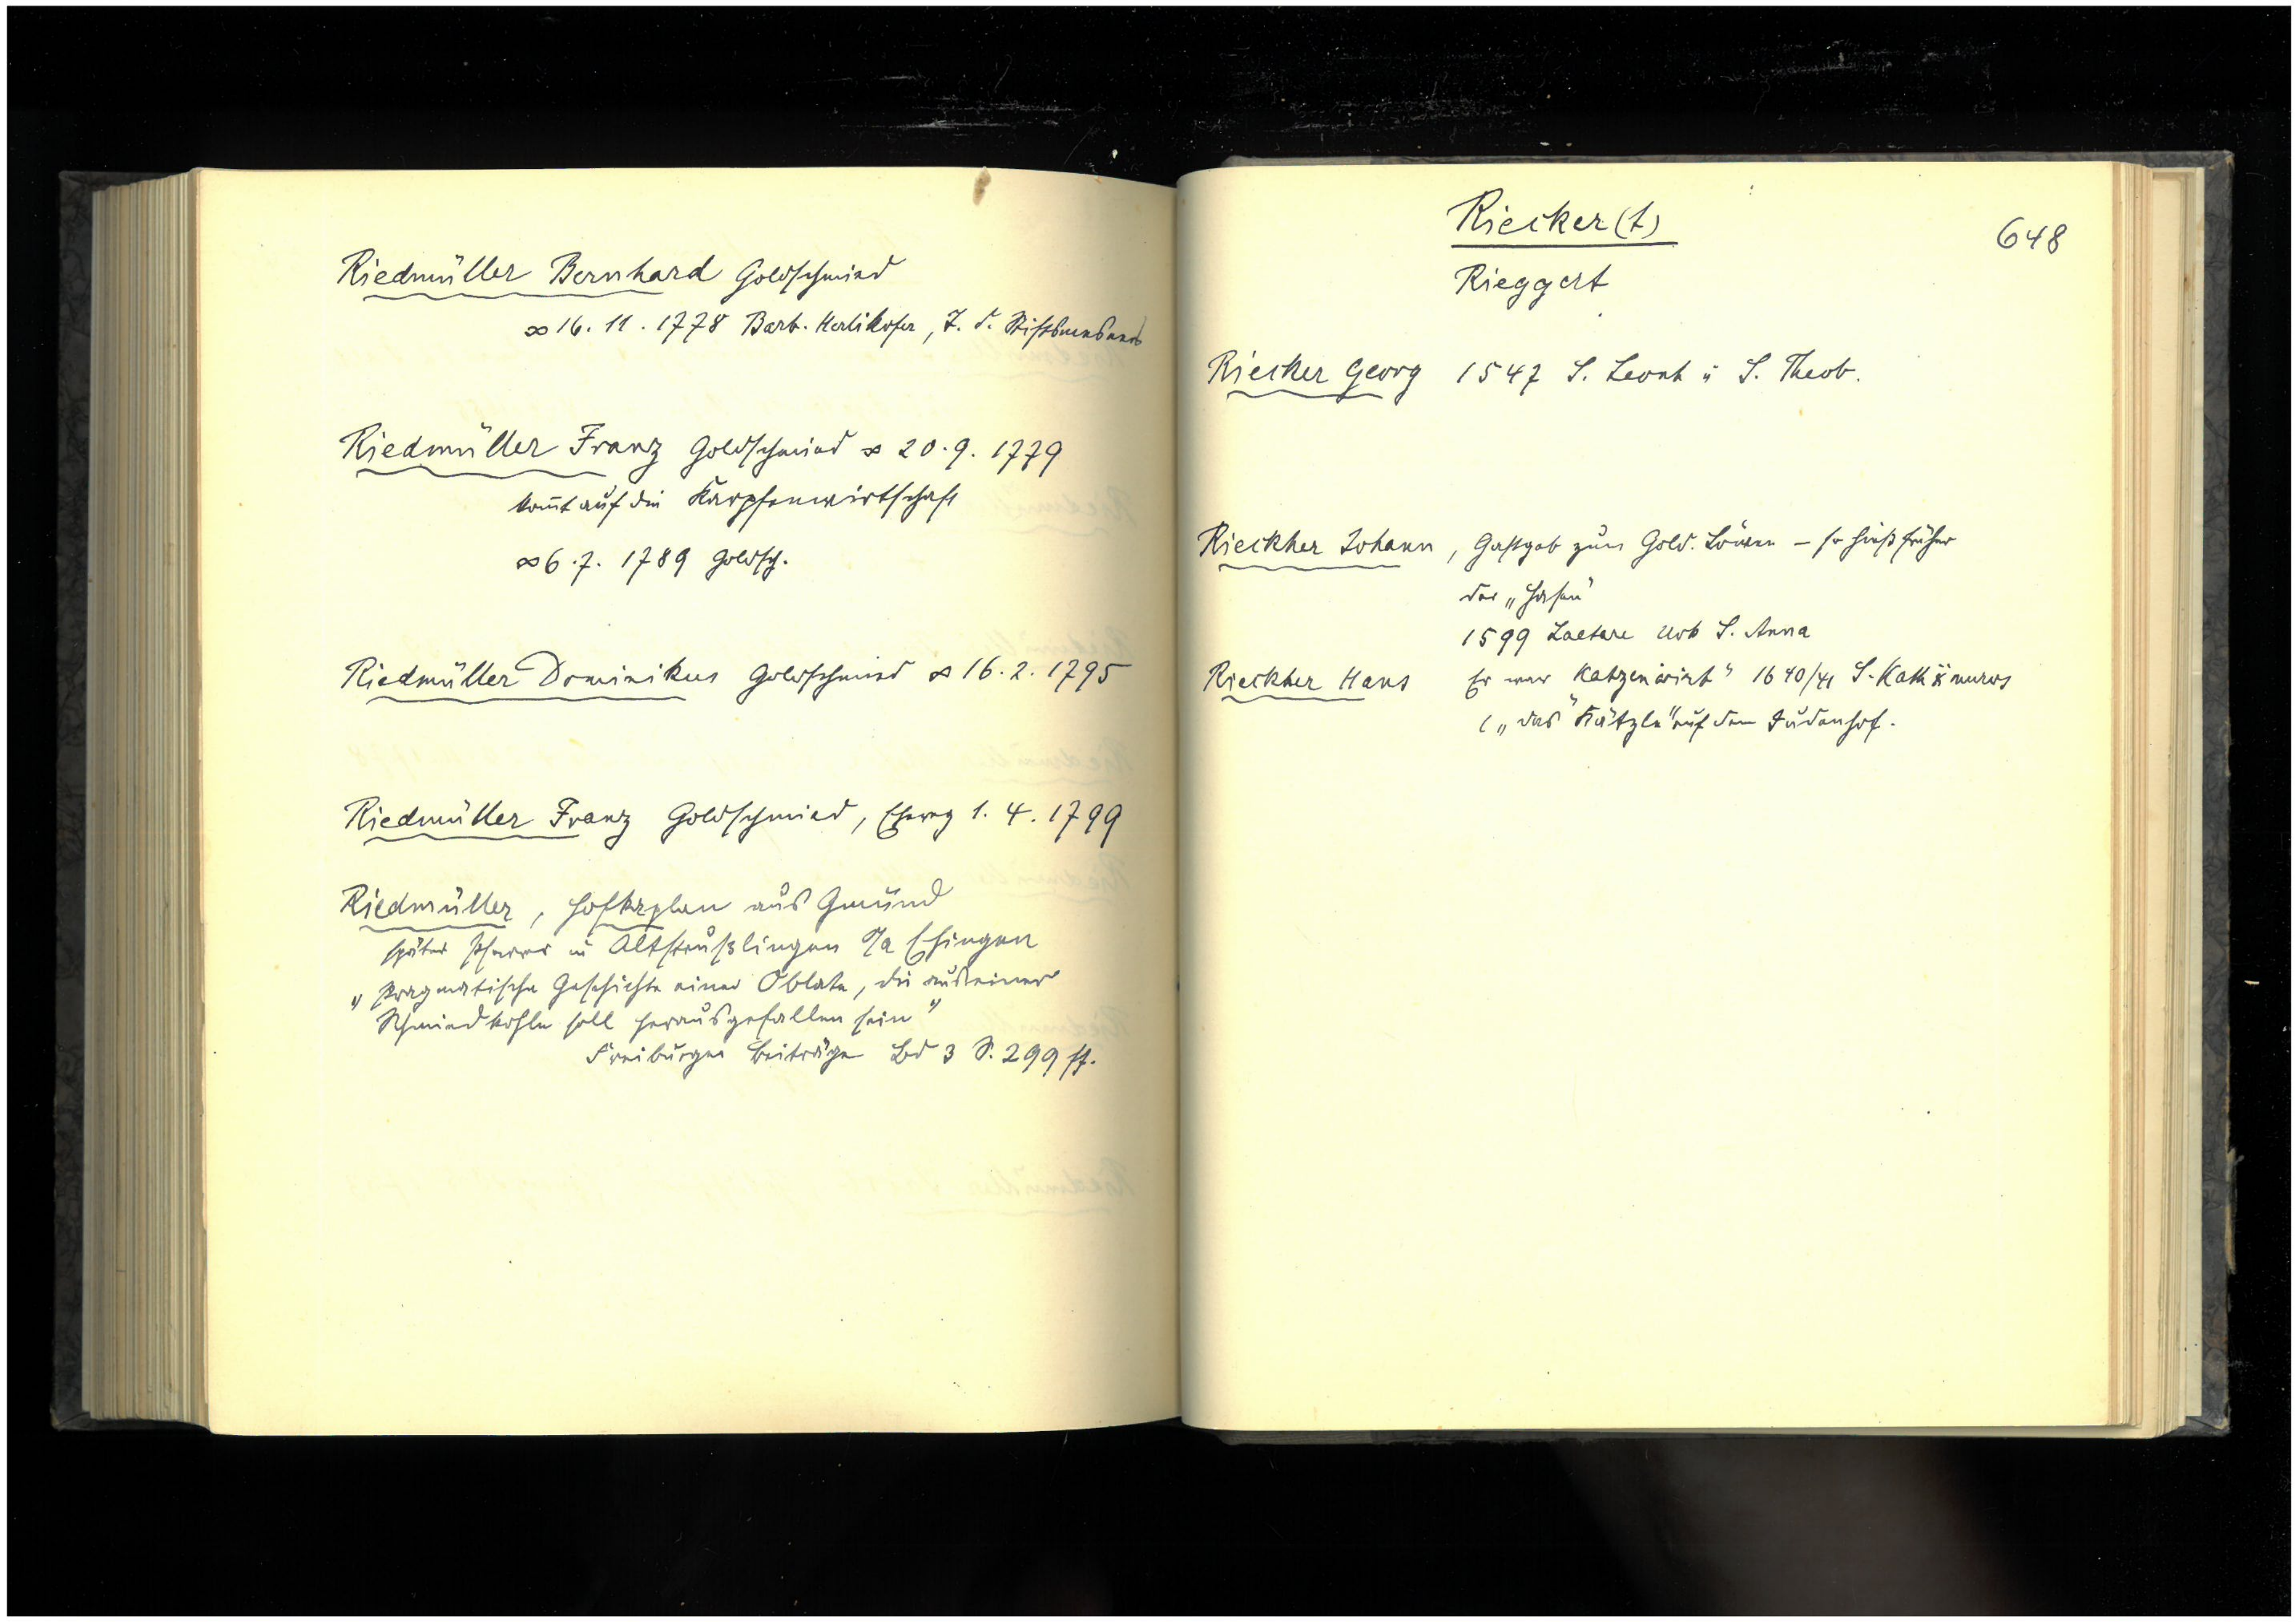 Riedmüller Bernhard Goldschmied
∞ 16. 11. 1778 Barb. Herlikofer, T. d.
Riedmüller Franz Goldschmied ∞ 20. 9. 1779
kom̄t auf die Karpfenwirtschaft
∞ 6. 7. 1789 Goldsch.
Riedmüller Dominikus Goldschmied ∞ 16. 2. 1795
Riedmüller Franz Goldschmied, 1. 4. 1799
Riedmüller, Hofkaplan aus Gmünd
später Pfarrer in Altsteußlingen O/A Ehingen
„Pragmatische Geschichte einer Oblate, die aus einer
Schmiedkohle soll herausgefallen sein"
Freiburger Beiträge Bd 3 S. 299 ff.
Riecker(t)
648
Rieggert
Riecker Georg 1547 S. Leonh u S. Theob.
Rieckher Johann, Gastgeb zum Gold. Löwen – er hieß früher
der „Hasen"
1599 Laetare Urb S. Anna
Rieckher Hans Er war Katzenwirt" 1640/41 S. Kath
(„das Kätzle" auf dem Judenhof.